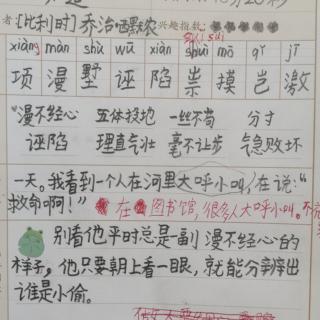 者[比利时]乔治·西默农 兴趣指数:
xiàng màn shù wū xiàn suì mō qǐ jī
项 漫 墅 诬 陷 祟 摸 岂 激
"漫不经心 五体投地 一丝不苟 分寸
诬陷 理直气壮 毫不让步 气急败坏
一天。我看到一个人在河里大呼小叫,在说:"
救命啊!" 在图书馆,很多人大呼小叫。
别看他平时总是一副漫不经心的
样子,他只要朝上看一眼,就能分辨出
谁是小偷。